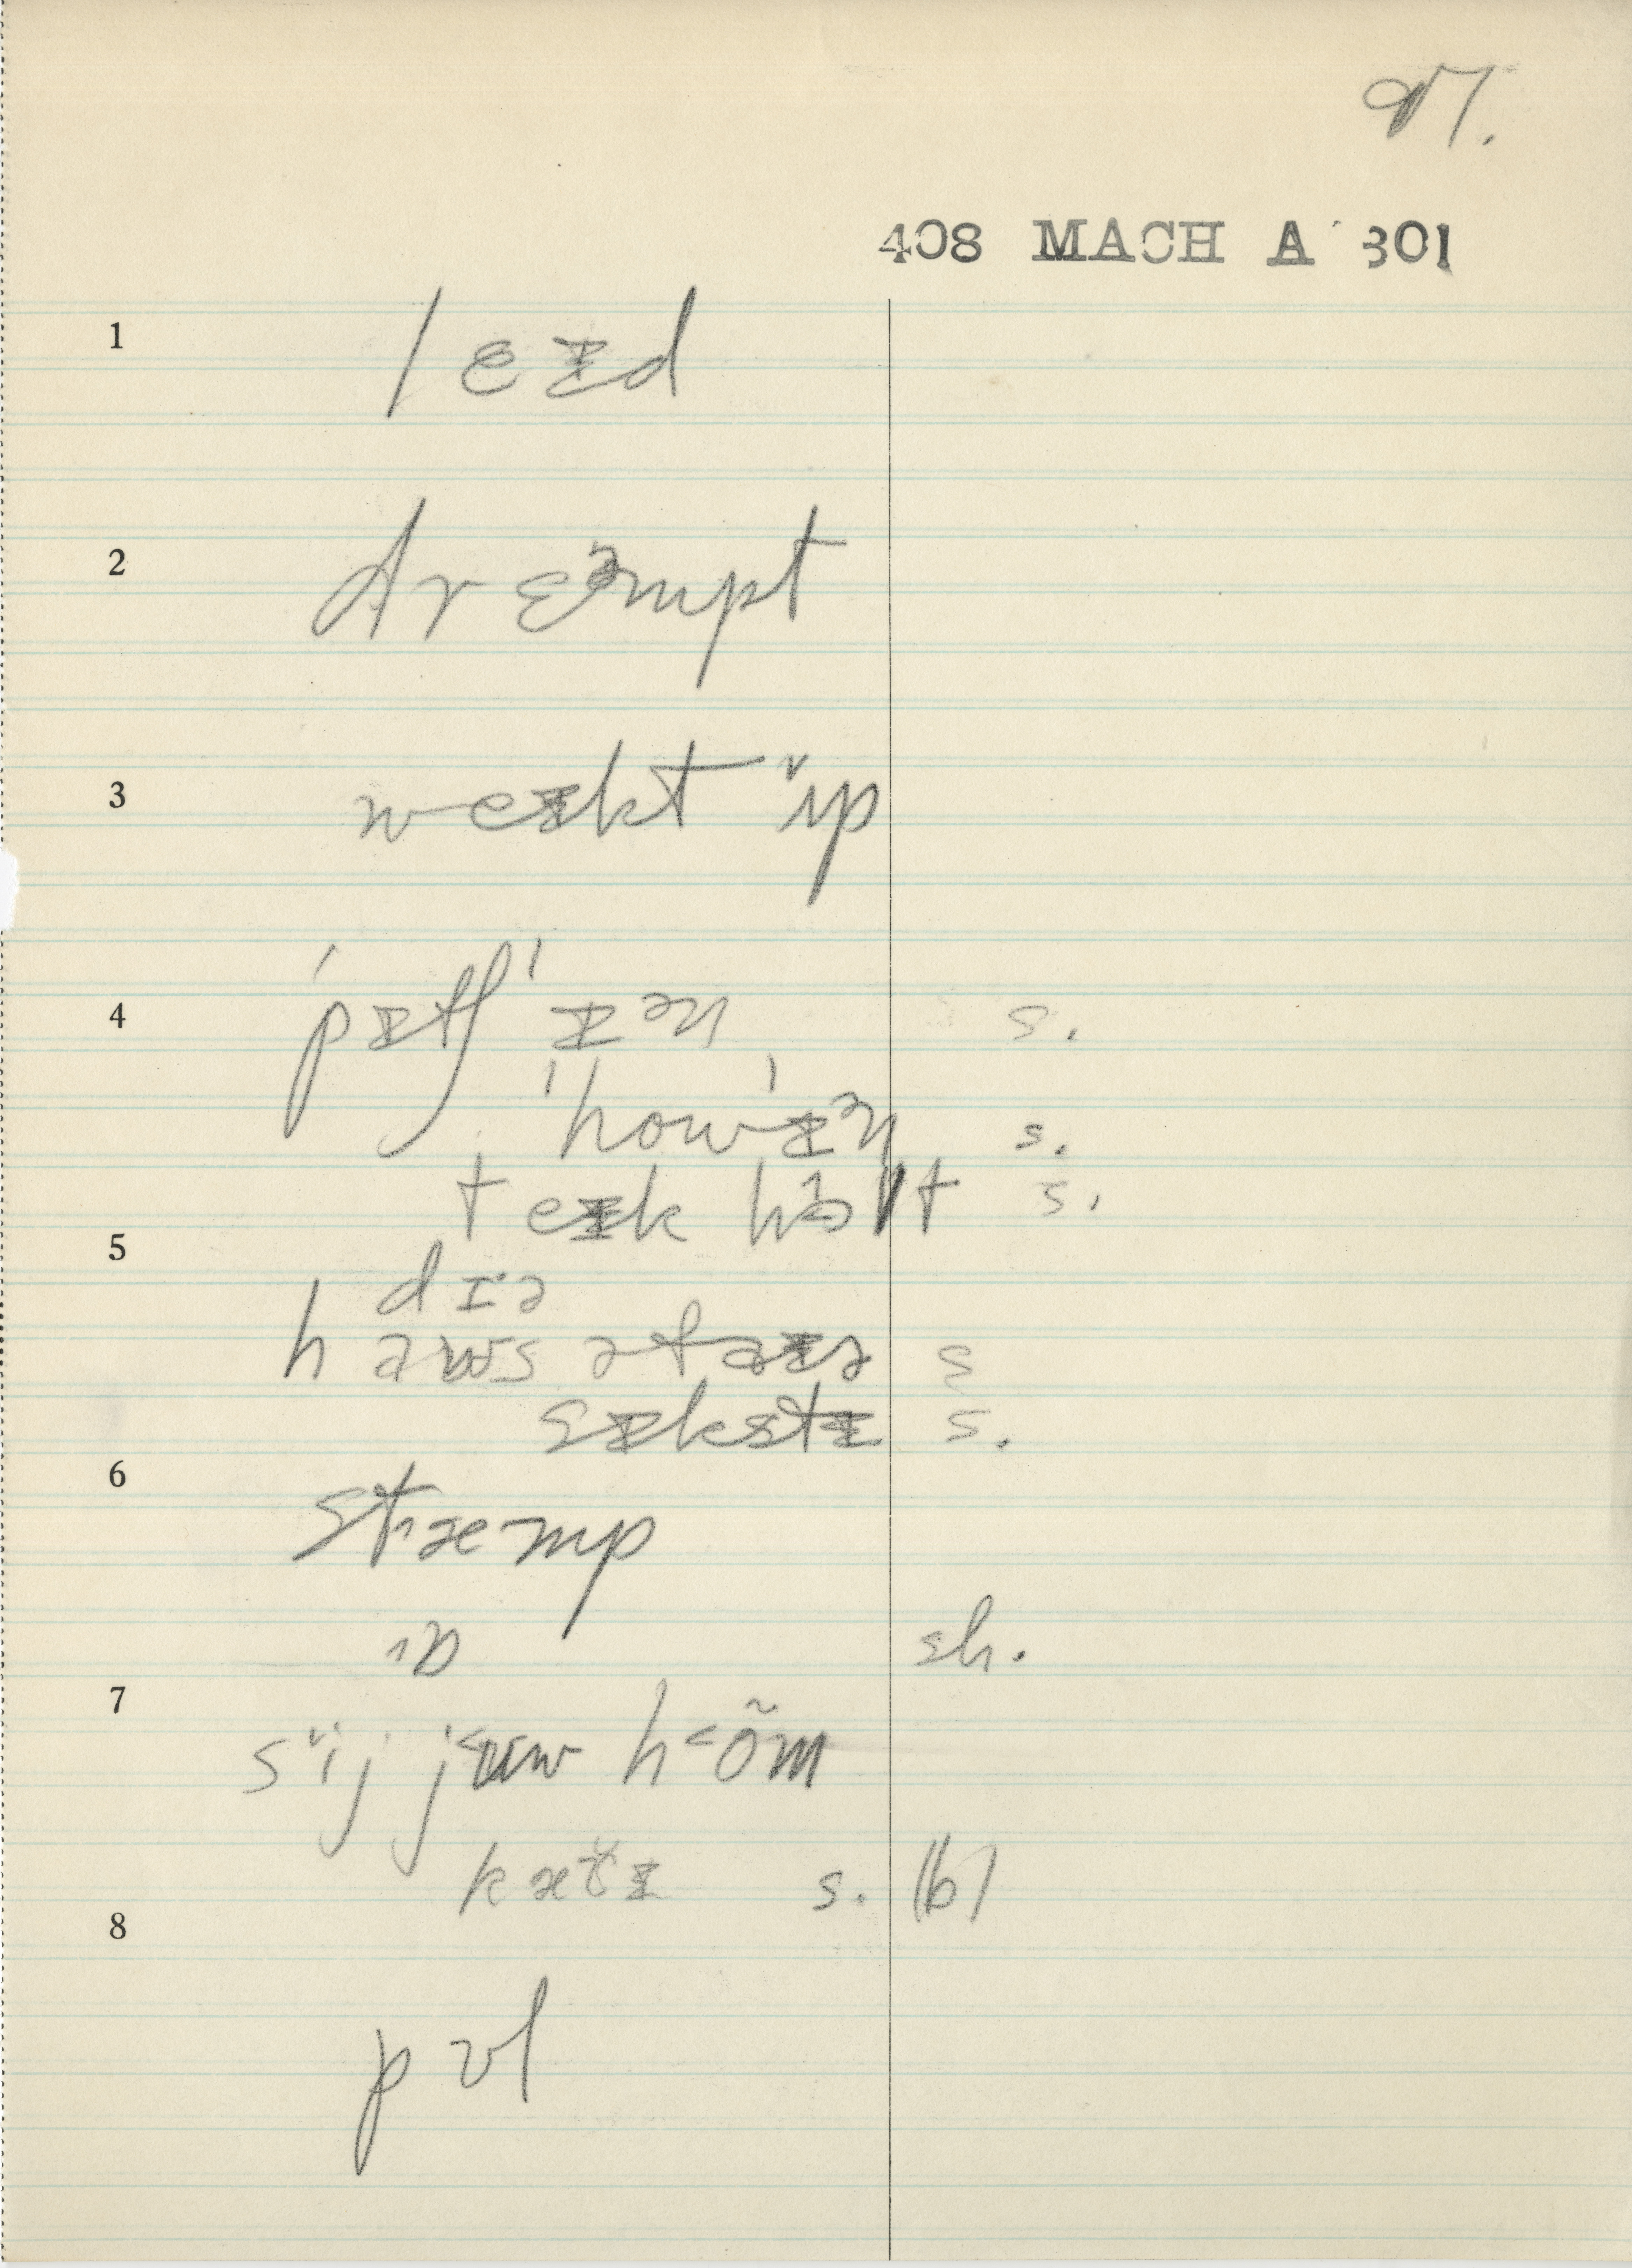 97.
408 MACH A 301
1 lɛɪd
2 drɛᵊmpt
3 weɪkt ɨ̆p
4 ˈpɪtʃˈɪᵊn s.
ˈhowˈɪᵊn s.
teɪk hɔlt s.
5 dɪ·ə
haws əfaɪə s
sɪkstɪ s.
6 stæmp
ɒ sh.
7 sɨj juw h<õm
kætɪ s. |b|
8 pʊl